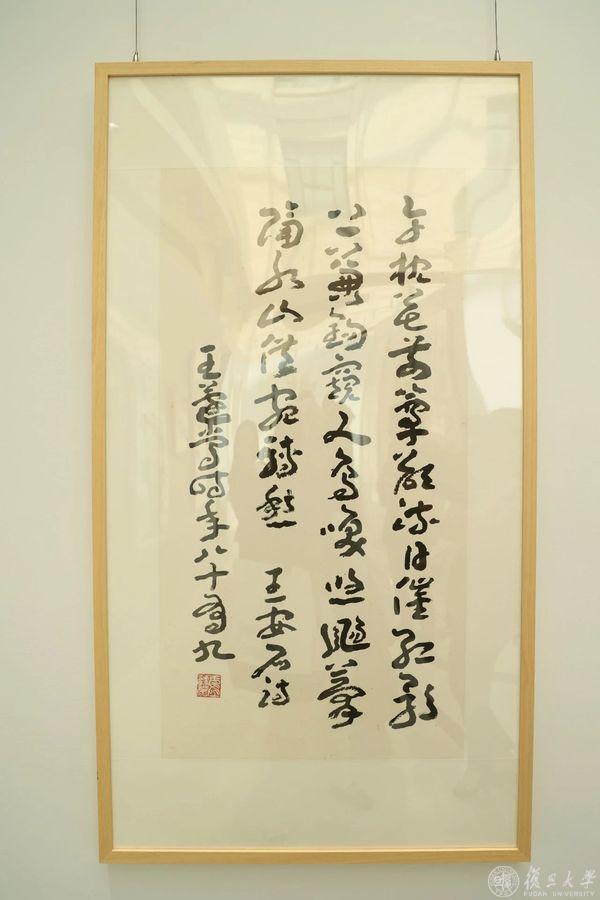 午枕花前簟欲流日催紅影
上簾鉤窺人鳥喚悠颺夢
隔水山供宛轉愁 王安石詩
王蘧常時年八十有九
復旦大學
FUDAN UNIVERSITY